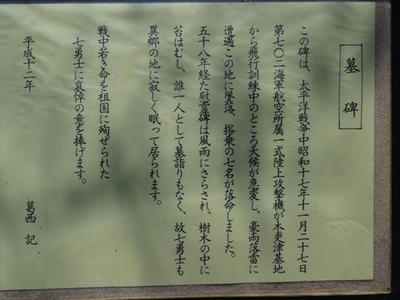 墓碑
この碑は、太平洋戦争中昭和十七年十一月二十七日
第七〇二海軍航空所属一式陸上攻撃機が木更津基地
から飛行訓練中のところ天候が急変し、豪雨落雷に
遭遇この地に墜落、搭乗の七名が落命しました。
五十八年経た慰霊碑は風雨にさらされ、樹木の中に
苔はむし、誰一人として墓詣りもなく、故七勇士も
異郷の地に寂しく眠って居られます。
戦中若き命を祖国に殉ぜられた
七勇士に哀悼の意を捧げます。
平成十二年
葛西 記